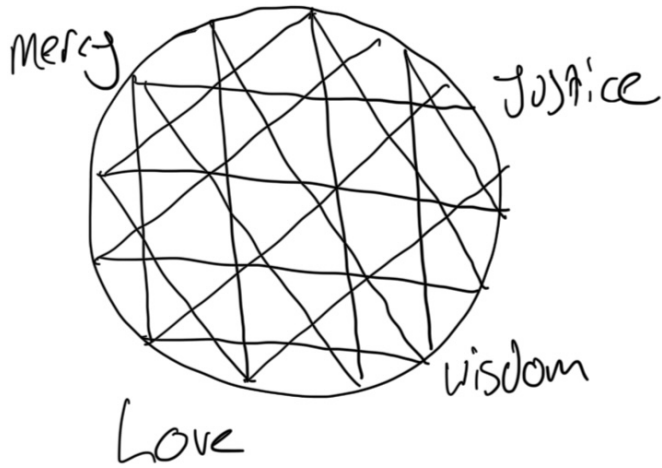 Mercy
Justice
wisdom
Love